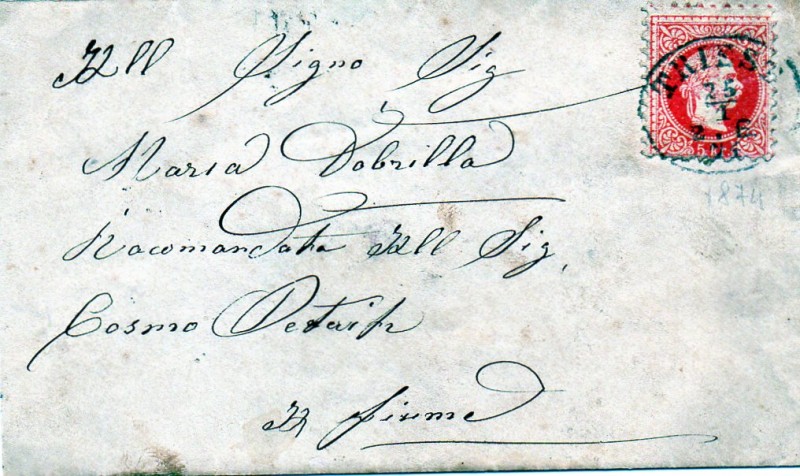 All Signo Sig
Maria Dobrilla
Racomandata All Sig,
Cosmo
A fiume
TRIEST
25
1
1874